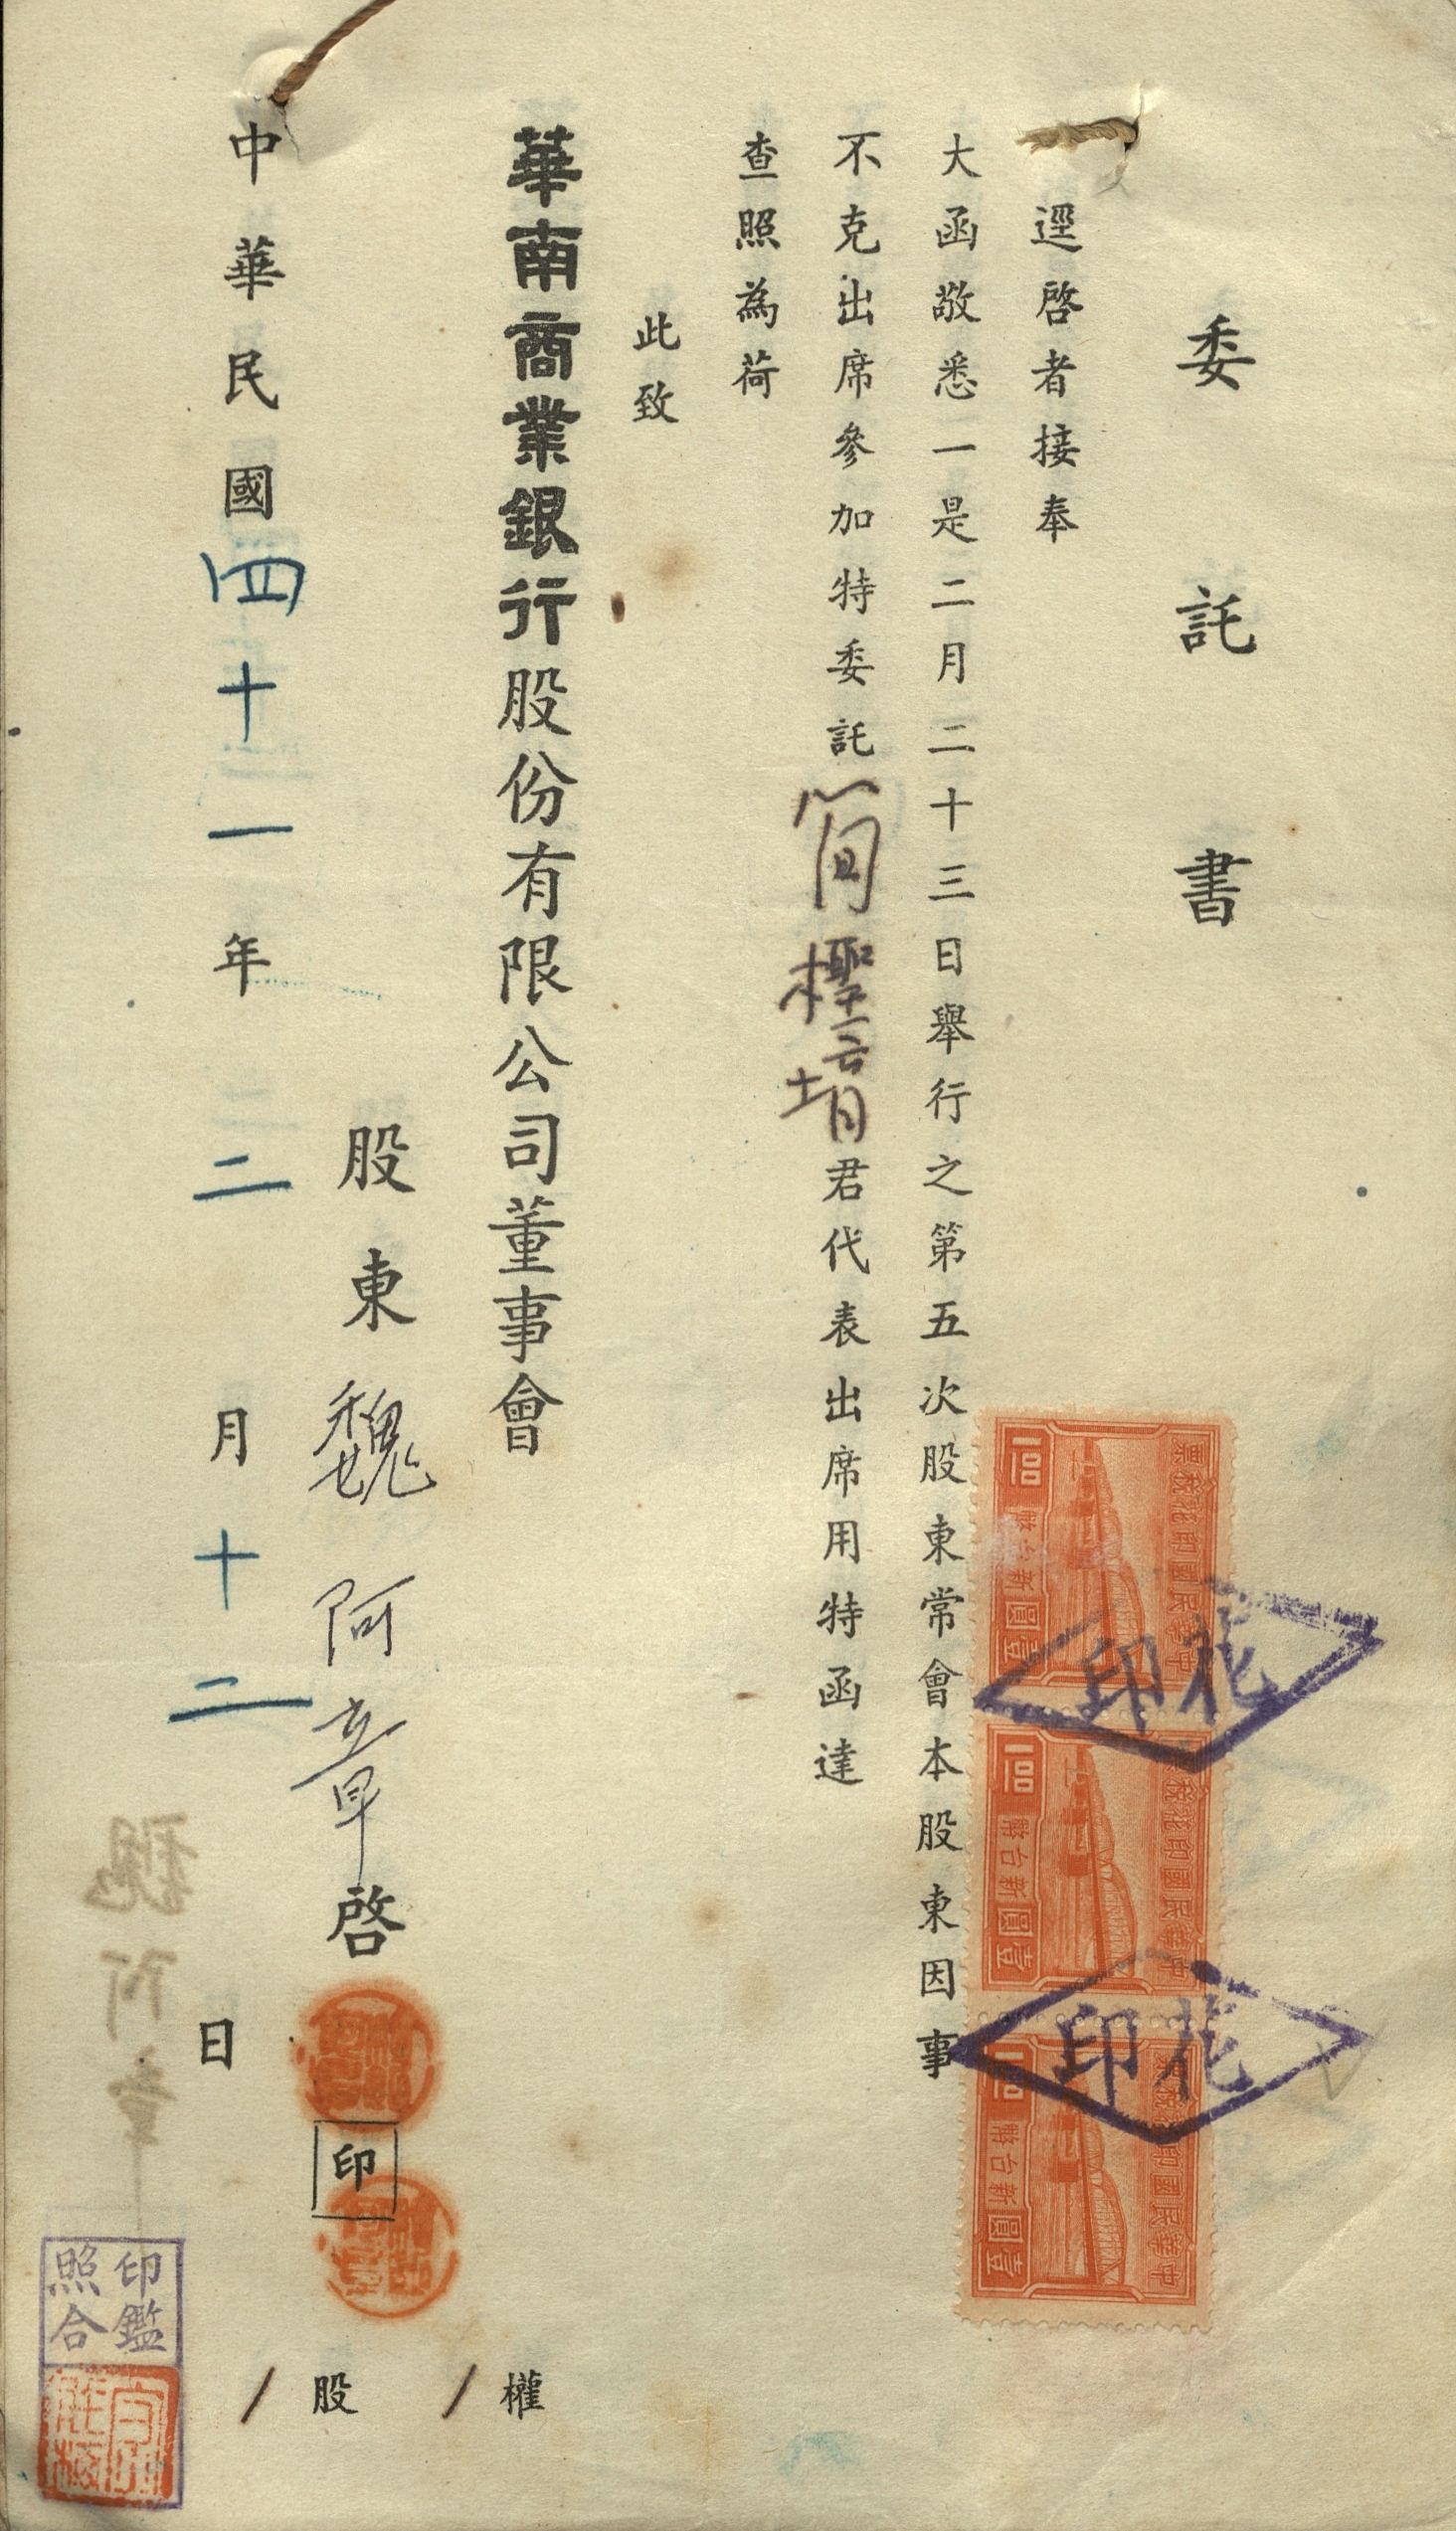 委託書
逕啓者接奉
大函敬悉一是二月二十三日舉行之第五次股東常會本股東因事
不克出席參加特委託簡檉堉君代表出席用特函達
查照為荷
此致
華南商業銀行股份有限公司董事會
股東魏阿章啓
印
中華民國四十一年二月十二日
權
/
股
/
印鑑
照合
中華民國印花稅票
壹圓新台幣
100
中華民國印花稅票
壹圓新台幣
100
中華民國印花稅票
壹圓新台幣
100
花印
花印